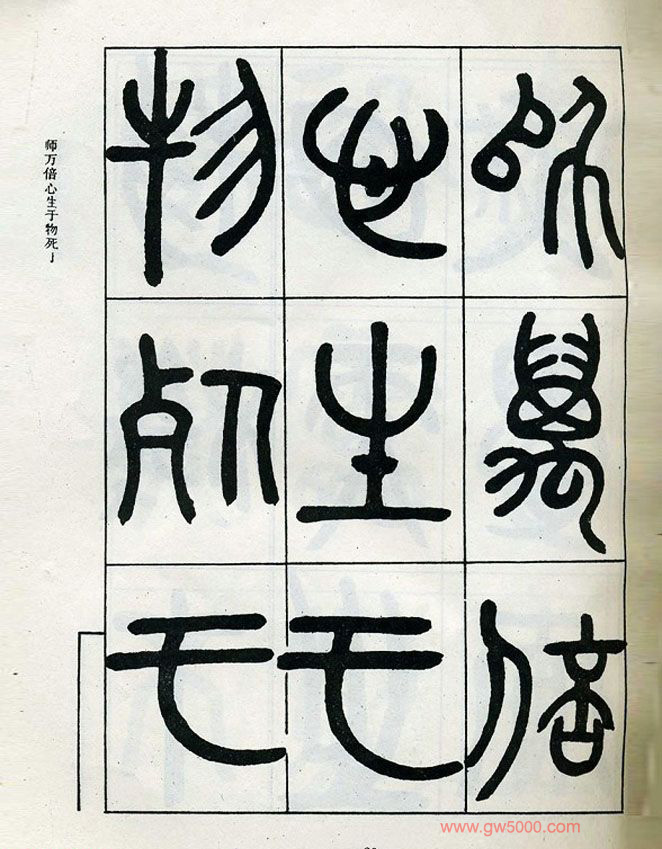 師萬倍
心生于
物死于
师万倍心生于物死
www.gw5000.com